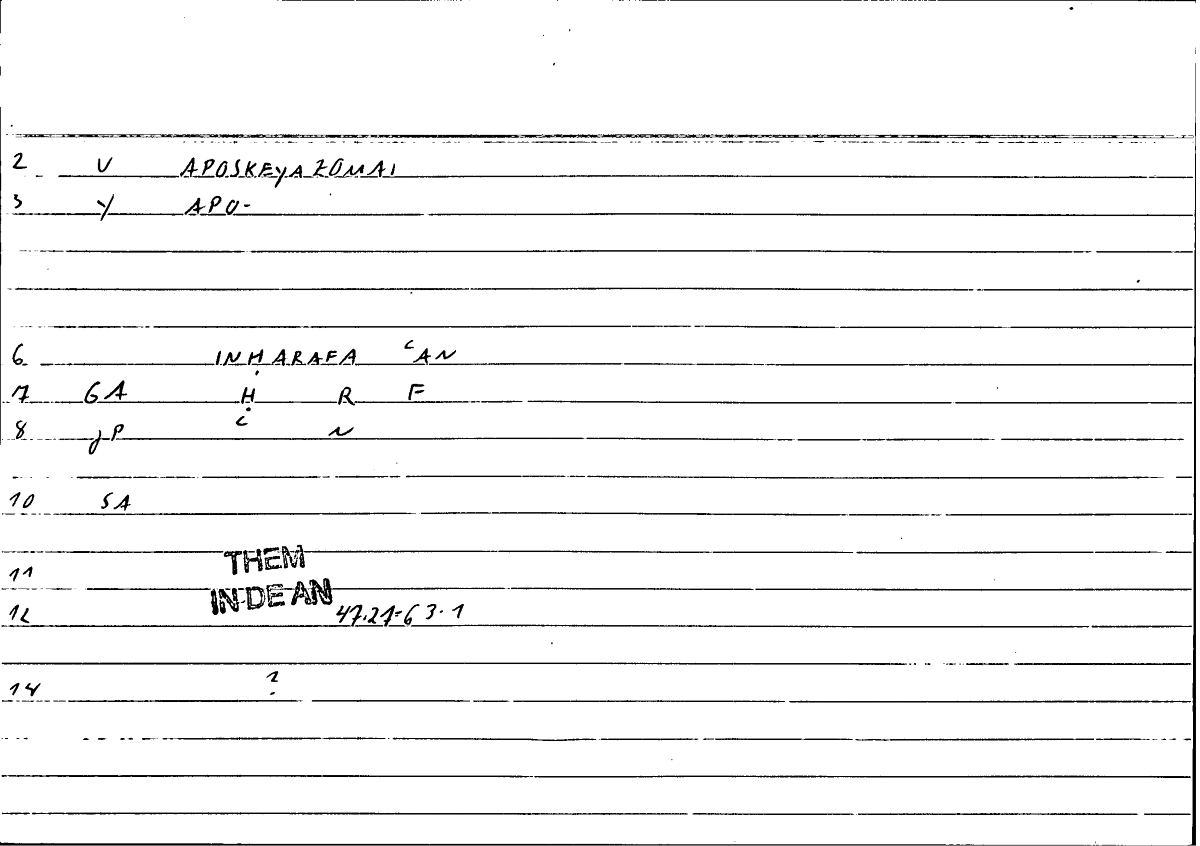 2 V APOSKEYAZOMAI
3 Y APO-
6 INḤARAFA ᶜAN
7 GA Ḥ R F
8 JP ᶜ N
10 SA
11 THEM
IN DE AN
12 47.21-63.1
14 ?